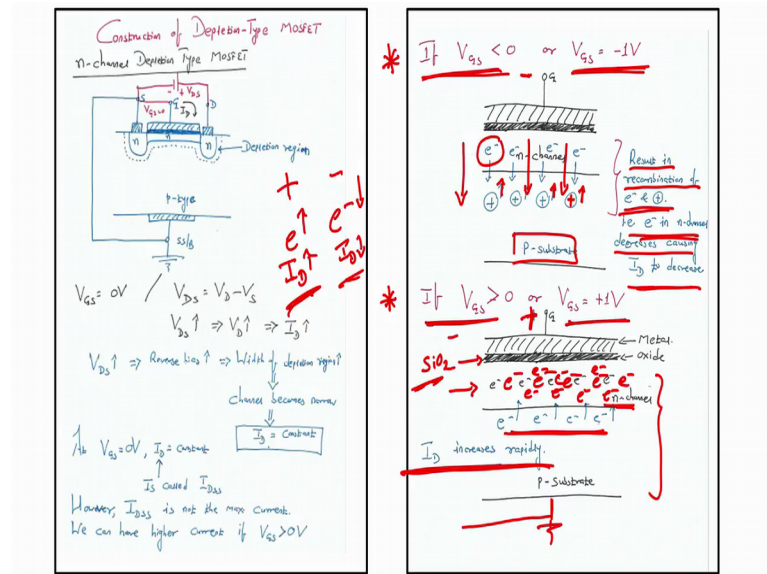 Construction of Depletion-Type MOSFET
n-channel Depletion Type MOSFET
+ VDS
S
G
ID
D
VGS=0
n
n
n
Depletion region
P-type
SS/B
+
-
e↑
e-↓
ID↑
ID↓
VGS = 0V / VDS = VD-VS
VDS↑ ⇒ VD↑ ⇒ ID↑
VDS↑ ⇒ Reverse bias↑ ⇒ Width of depletion region↑
channel becomes narrow
ID = Constant
At VGS=0V, ID = constant
Is called IDSS
However, IDSS is not the max current.
We can have higher current if VGS>0V
* If VGS < 0 or VGS = -1V
-
G
e- e- n-channel e- e-
+ + + +
Result in
recombination of
e- & +.
i.e e- in n-channel
decreases causing
ID to decrease
P-substrate
* If VGS > 0 or VGS = +1V
+
G
-
Metal
SiO2
oxide
n-channel
e- e- e- e-
ID increases rapidly.
P-substrate